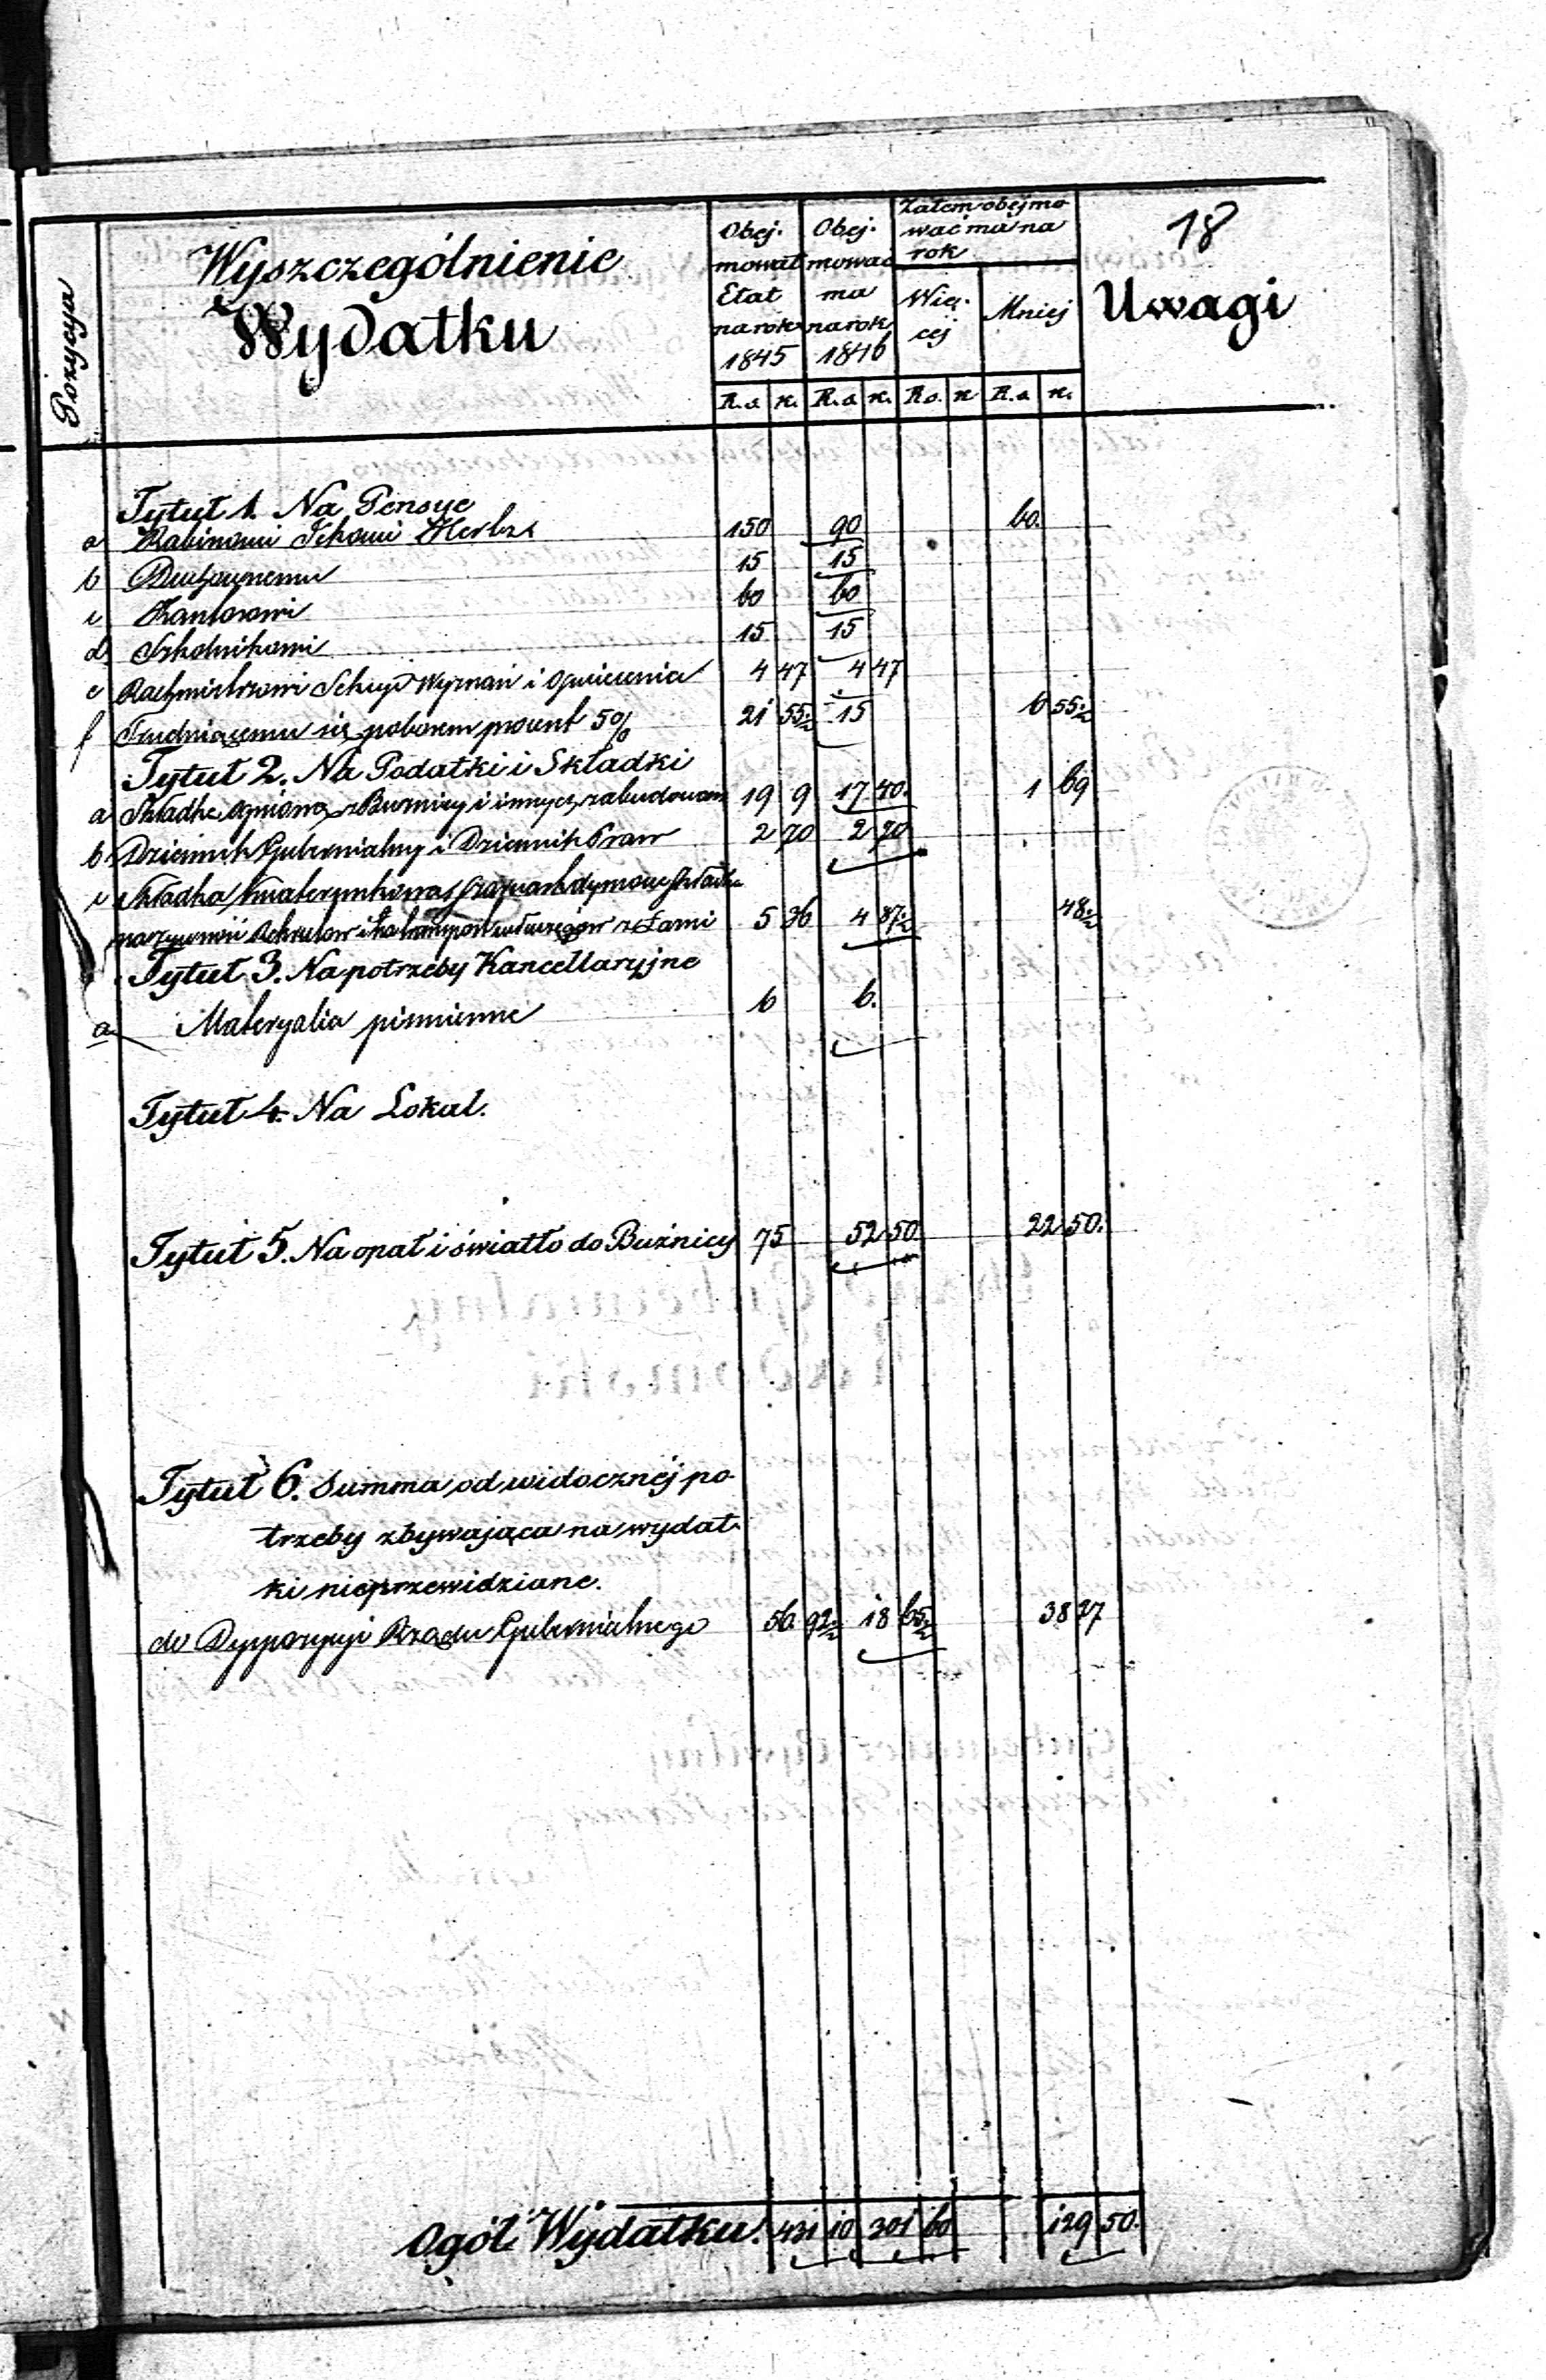 18
Pozycya
Wyszczególnienie
Wydatku
Obej-
mował
Etat
na rok
1845
Obej-
mować
ma
na rok
1846
Zatem obejmo
wać ma na
rok
Wię-
cej
Mniej
Uwagi
R.s. k. R.s. k. R.s. k R.s. k.
Tytuł 1. Na Pensye
a Rabinowi 150 90 60.
b Duchownemu 15 15
c Kantorowi 60 60
d Szkolnikowi 15 15
e Rachmistrzowi Sekcyi Wyznań i Oświecenia 4 47 4 47
f Trudniącemu się poborem procent 5% 21 55½ 15 6 55½
Tytuł 2. Na Podatki i Składki
a Składka Ogniowa z Bużnicy i innych zabudowań 19 9 17 40. 1 69
b Dziennik Gubernialny i Dziennik Praw 2 70 2 70
c Składka kwaterunkowa dymowy Składka
na żywność i na transport włóczęgów 5 36 4 87½ 48½
Tytuł 3. Na potrzeby Kancellaryjne
a Materyalia piśmienne 6 6.
Tytuł 4. Na Lokal.
Tytuł 5. Na opał i światło do Bużnicy 75 52 50. 22 50.
Tytuł 6. Summa od widocznéj po-
trzeby zbywająca na wydat-
ki nieprzewidziane.
do Dyspozycyi Rządu Gubernialnego 56. 92½ 18 65½ 38 27
Ogół Wydatku. 431 10 301 60 129 50.